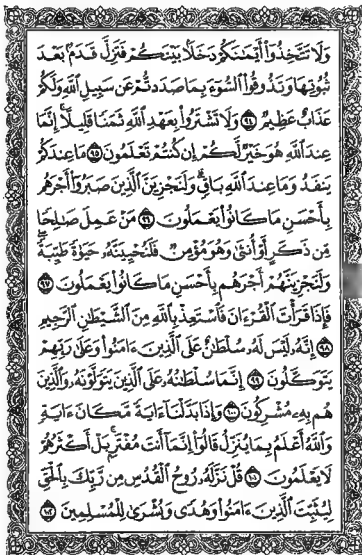 وَلَا تَتَّخِذُوٓا۟ أَيْمَـٰنَكُمْ دَخَلًۢا بَيْنَكُمْ فَتَزِلَّ قَدَمٌۢ بَعْدَ
ثُبُوتِهَا وَتَذُوقُوا۟ ٱلسُّوٓءَ بِمَا صَدَدتُّمْ عَن سَبِيلِ ٱللَّهِ وَلَكُمْ
عَذَابٌ عَظِيمٌ ﴿٩٤﴾ وَلَا تَشْتَرُوا۟ بِعَهْدِ ٱللَّهِ ثَمَنًا قَلِيلًا ۚ إِنَّمَا
عِندَ ٱللَّهِ هُوَ خَيْرٌ لَّكُمْ إِن كُنتُمْ تَعْلَمُونَ ﴿٩٥﴾ مَا عِندَكُمْ
يَنفَدُ وَمَا عِندَ ٱللَّهِ بَاقٍ ۗ وَلَنَجْزِيَنَّ ٱلَّذِينَ صَبَرُوٓا۟ أَجْرَهُم
بِأَحْسَنِ مَا كَانُوا۟ يَعْمَلُونَ ﴿٩٦﴾ مَنْ عَمِلَ صَـٰلِحًا
مِّن ذَكَرٍ أَوْ أُنثَىٰ وَهُوَ مُؤْمِنٌ فَلَنُحْيِيَنَّهُۥ حَيَوٰةً طَيِّبَةً ۖ
وَلَنَجْزِيَنَّهُمْ أَجْرَهُم بِأَحْسَنِ مَا كَانُوا۟ يَعْمَلُونَ ﴿٩٧﴾
فَإِذَا قَرَأْتَ ٱلْقُرْءَانَ فَٱسْتَعِذْ بِٱللَّهِ مِنَ ٱلشَّيْطَـٰنِ ٱلرَّجِيمِ
﴿٩٨﴾ إِنَّهُۥ لَيْسَ لَهُۥ سُلْطَـٰنٌ عَلَى ٱلَّذِينَ ءَامَنُوا۟ وَعَلَىٰ رَبِّهِمْ
يَتَوَكَّلُونَ ﴿٩٩﴾ إِنَّمَا سُلْطَـٰنُهُۥ عَلَى ٱلَّذِينَ يَتَوَلَّوْنَهُۥ وَٱلَّذِينَ
هُم بِهِۦ مُشْرِكُونَ ﴿١٠٠﴾ وَإِذَا بَدَّلْنَآ ءَايَةً مَّكَانَ ءَايَةٍ ۙ
وَٱللَّهُ أَعْلَمُ بِمَا يُنَزِّلُ قَالُوٓا۟ إِنَّمَآ أَنتَ مُفْتَرٍۭ ۚ بَلْ أَكْثَرُهُمْ
لَا يَعْلَمُونَ ﴿١٠١﴾ قُلْ نَزَّلَهُۥ رُوحُ ٱلْقُدُسِ مِن رَّبِّكَ بِٱلْحَقِّ
لِيُثَبِّتَ ٱلَّذِينَ ءَامَنُوا۟ وَهُدًى وَبُشْرَىٰ لِلْمُسْلِمِينَ ﴿١٠٢﴾